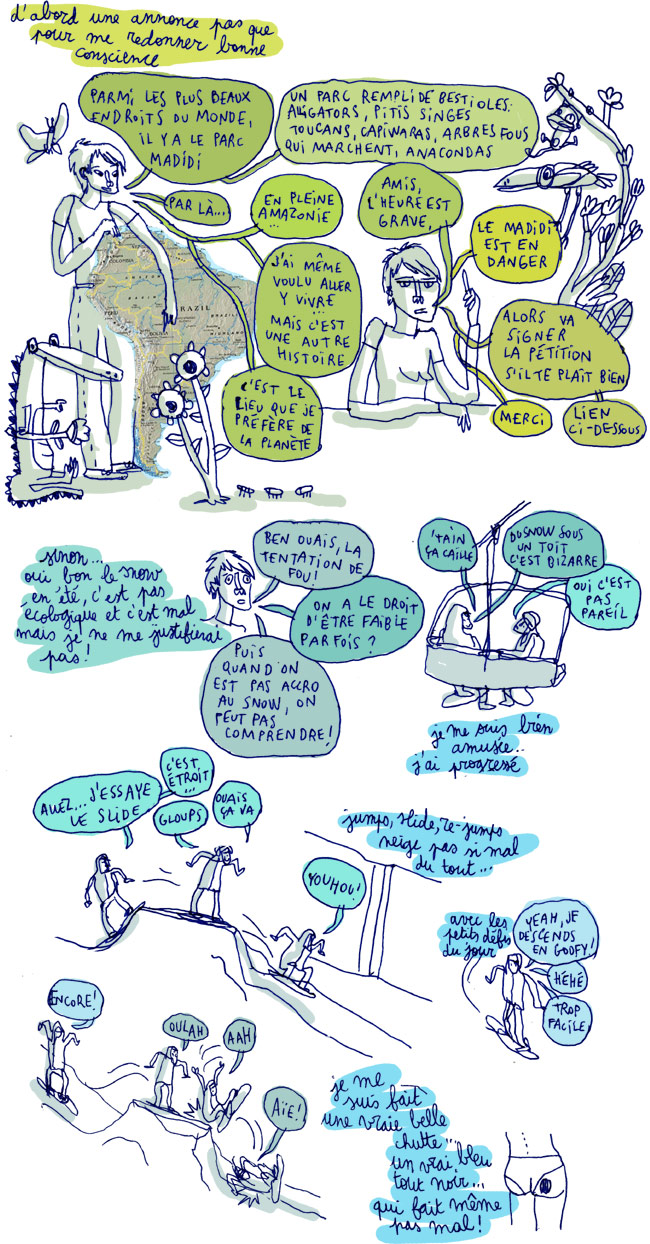 d'abord une annonce pas que
pour me redonner bonne
conscience
PARMI LES PLUS BEAUX
ENDROITS DU MONDE,
IL Y A LE PARC
MADIDI
UN PARC REMPLI DE BESTIOLES:
ALLIGATORS, PITIS SINGES
TOUCANS, CAPIVARAS, ARBRES FOUS
QUI MARCHENT, ANACONDAS
PAR LÀ...
EN PLEINE
AMAZONIE
...
J'AI MÊME
VOULU ALLER
Y VIVRE
...
MAIS C'EST
UNE AUTRE
HISTOIRE
C'EST LE
LIEU QUE JE
PRÉFÈRE DE
LA PLANÈTE
AMIS,
L'HEURE EST
GRAVE,
LE MADIDI
EST EN
DANGER
ALORS VA
SIGNER
LA PÉTITION
S'IL TE PLAIT BIEN
MERCI
LIEN
CI-DESSOUS
COLOMBIA
BRAZIL
BRAZIL
PERU
BOLIVIA
sinon...
oui bon le snow
en été, c'est pas
écologique et c'est mal
mais je ne me justifierai
pas!
BEN OUAIS, LA
TENTATION DE
FOU!
ON A LE DROIT
D'ÊTRE FAIBLE
PARFOIS?
PUIS
QUAND ON
EST PAS ACCRO
AU SNOW, ON
PEUT PAS
COMPRENDRE!
'TAIN
ÇA CAILLE
DU SNOW SOUS
UN TOIT
C'EST BIZARRE
OUI C'EST
PAS
PAREIL
je me suis bien
amusée..
j'ai progressé
ALLEZ... J'ESSAYE
LE SLIDE
C'EST
ÉTROIT
...
GLOUPS
OUAIS
ÇA VA
YOUHOU!
jumps, slide, re-jumps
neige pas si mal
du tout...
avec les
petits défis
du jour
YEAH, JE
DESCENDS
EN GOOFY!
HÉHÉ
TROP
FACILE
ENCORE!
OULAH
AAH
AÏE!
je me
suis fait
une vraie belle
chutte...
un vrai bleu
tout noir...
qui fait même
pas mal!